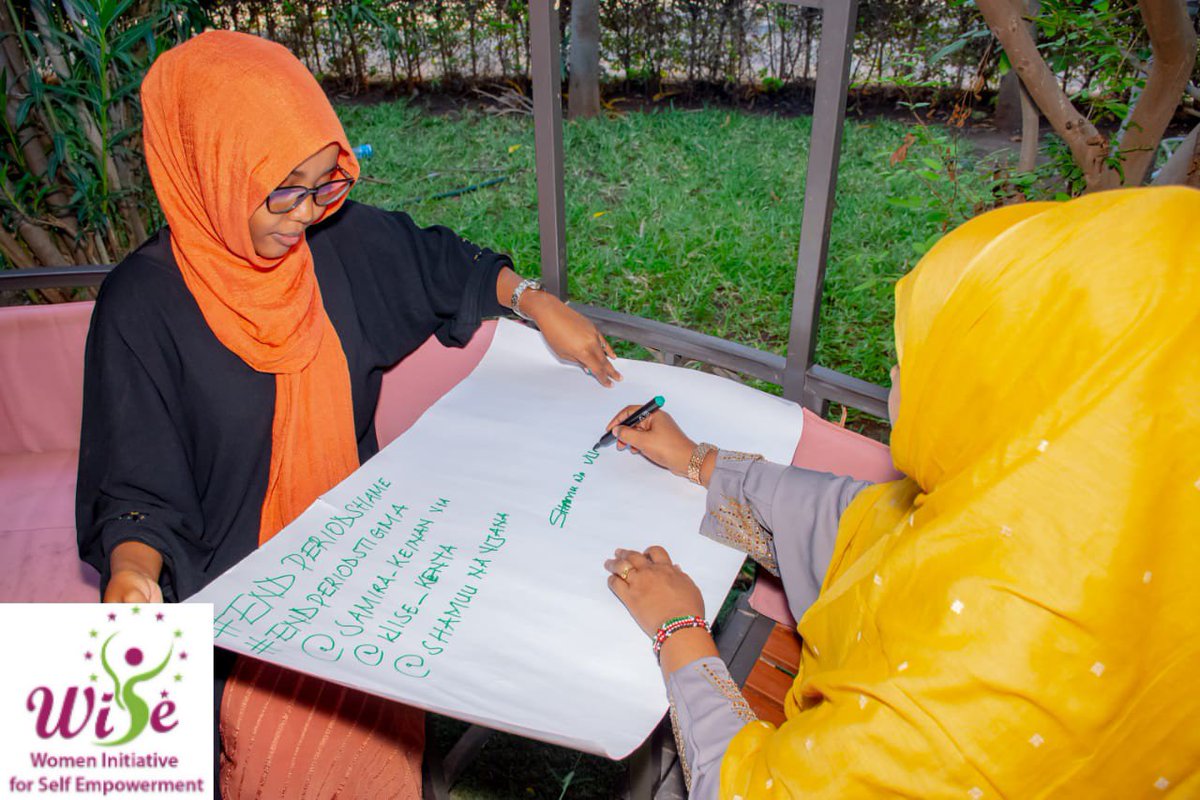 #END PERIODSHAME
#ENDPERIODSTIGMA
@SAMIRA-KEINAN VU
@WISE_KENYA
@SHAMUU NA VIJANA
Shamu na Vi
WiSe
Women Initiative
for Self Empowerment